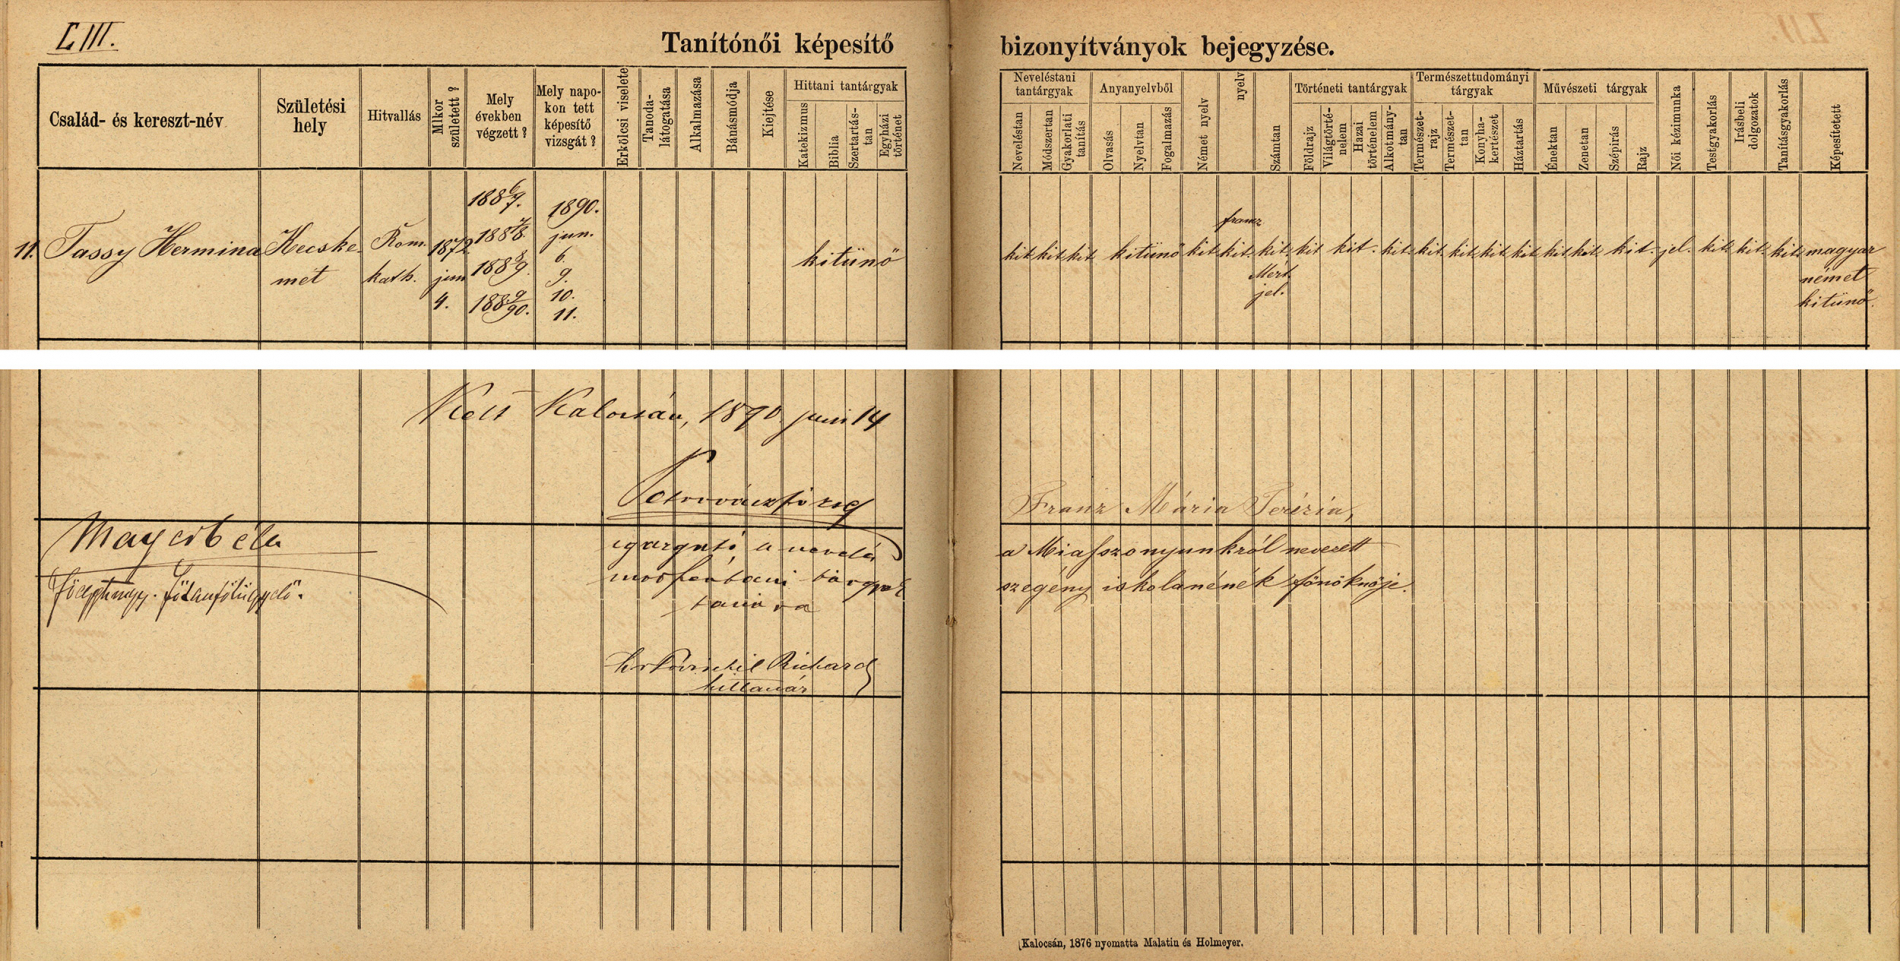 LIII.
Tanítónői képesítő bizonyítványok bejegyzése.
Család- és kereszt-név
Születési hely
Hitvallás
Mikor született?
Mely években végzett?
Mely napokon tett képesítő vizsgát?
Erkölcsi viselete
Tanodalátogatása
Alkalmazása
Bánásmódja
Kiejtése
Hittani tantárgyak
Katekizmus
Biblia
Szertartástan
Egyházi történet
Neveléstani tantárgyak
Neveléstan
Módszertan
Gyakorlati tanítás
Anyanyelvből
Olvasás
Nyelvtan
Fogalmazás
Német nyelv
nyelv
Számtan
Történeti tantárgyak
Földrajz
Világtörténelem
Hazai történelem
Alkotmánytan
Természettudományi tárgyak
Természetrajz
Természettan
Konyhakertészet
Háztartás
Művészeti tárgyak
Énektan
Zenetan
Szépirás
Rajz
Női kézimunka
Testgyakorlás
Irásbeli dolgozatok
Tanításgyakorlás
Képesíttetett
11. Tassy Hermina
Kecskemét
Rom. kath.
1872 jun 4.
1886/7.
1887/8.
1888/9.
1889/90.
1890.
jun.
6.
9.
10.
11.
kitünő
kit. kit. kit. kitünő kit.
franz
kit. kit. Mért. jel.
kit kit. kit. kit. kit. kit. kit kit. kit. kit. jel. kit. kit. kit.
magyar
német
kitünő.
Kelt Kalocsán, 1890. juni 14
igazgató a nevelés
tanára
Richard
hittanár
Mayer Béla
Franz Mária Terézia,
a Miasszonyunkról nevezett
szegény iskolanénék főnöknője.
Kalocsán, 1876 nyomatta Malatin és Holmeyer.